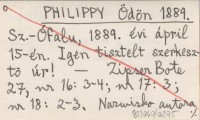 PHILIPPY Ödön 1889.
Sz.-Ófalu, 1889. évi április
15-én. Igen tisztelt szerkesz-
tő úr! — Zipser Bote
27, nr 16: 3-4; nr 17: 3;
nr 18: 2-3. Nazwisko autora